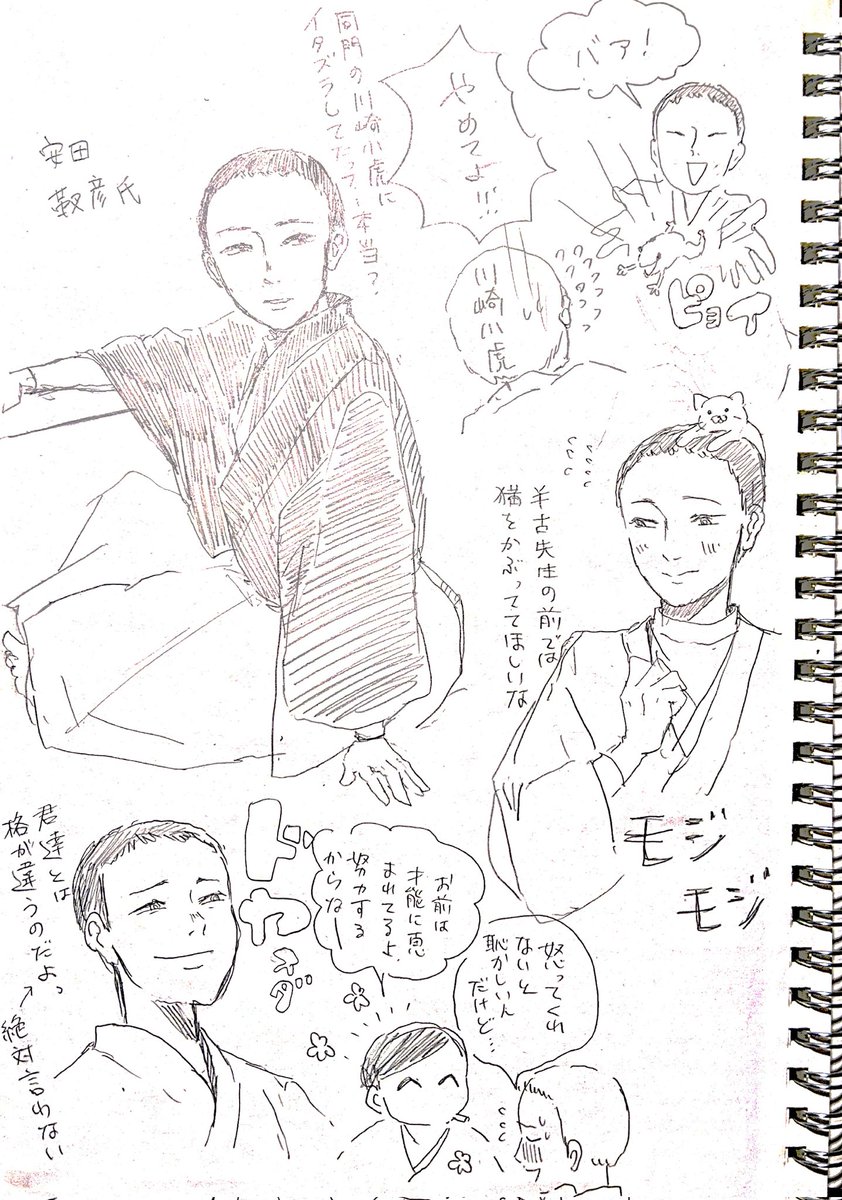 バァ!
やめてよ!!!
同門の川崎小虎に
イタズラしてたって〜本当?
安田
靫彦氏
川崎小虎
ピョイ
半古先生の前では
猫をかぶっててほしいな
モジ
モジ
お前は
才能に恵
まれてるよ、
努力する
からなー
君達とは
格が違うのだよっ
絶対言わない
怒ってくれ
ないと
恥かしいん
だけど…